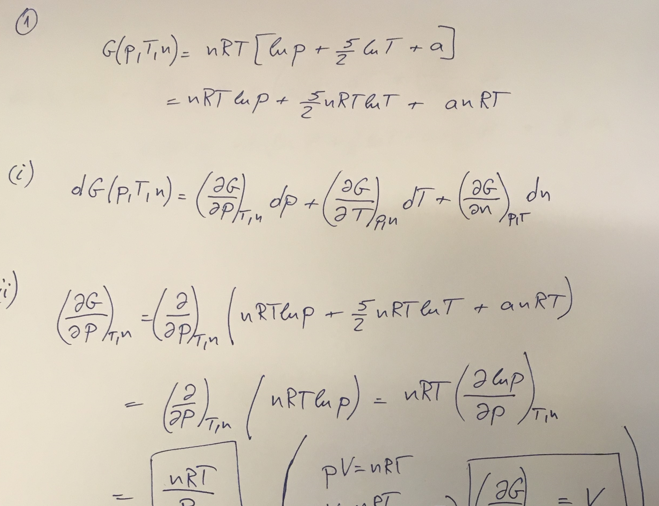 ①
G(p,T,n) = nRT[lnp + 5/2 lnT + a]
= nRT lnp + 5/2 nRT lnT + anRT
(i) dG(p,T,n) = (∂G/∂P)_T,n dp + (∂G/∂T)_p,n dT + (∂G/∂n)_p,T dn
i) (∂G/∂P)_T,n = (∂/∂P)_T,n (nRT lnp + 5/2 nRT lnT + anRT)
= (∂/∂P)_T,n (nRT lnp) = nRT (∂lnp/∂p)_T,n
= nRT/P ( pV = nRT
(∂G = V